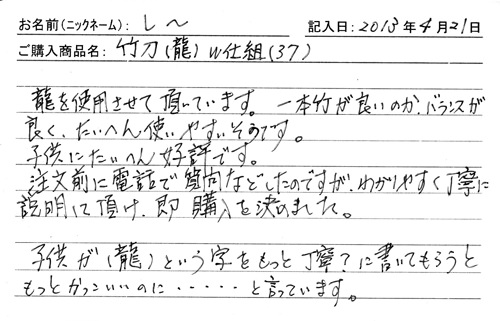 お名前(ニックネーム): し～
記入日: 2013年4月21日
ご購入商品名: 竹刀(龍) W仕組(37)
龍を使用させて頂いています。一本竹が良いのか、バランスが
良く、たいへん使いやすいそうです。
子供にたいへん好評です。
注文前に電話で質問などしたのですが、わかりやすく丁寧に
説明して頂け、即購入を決めました。
子供が(龍)という字をもっと丁寧?に書いてもらうと
もっとかっこいいのに・・・・・と言っています。